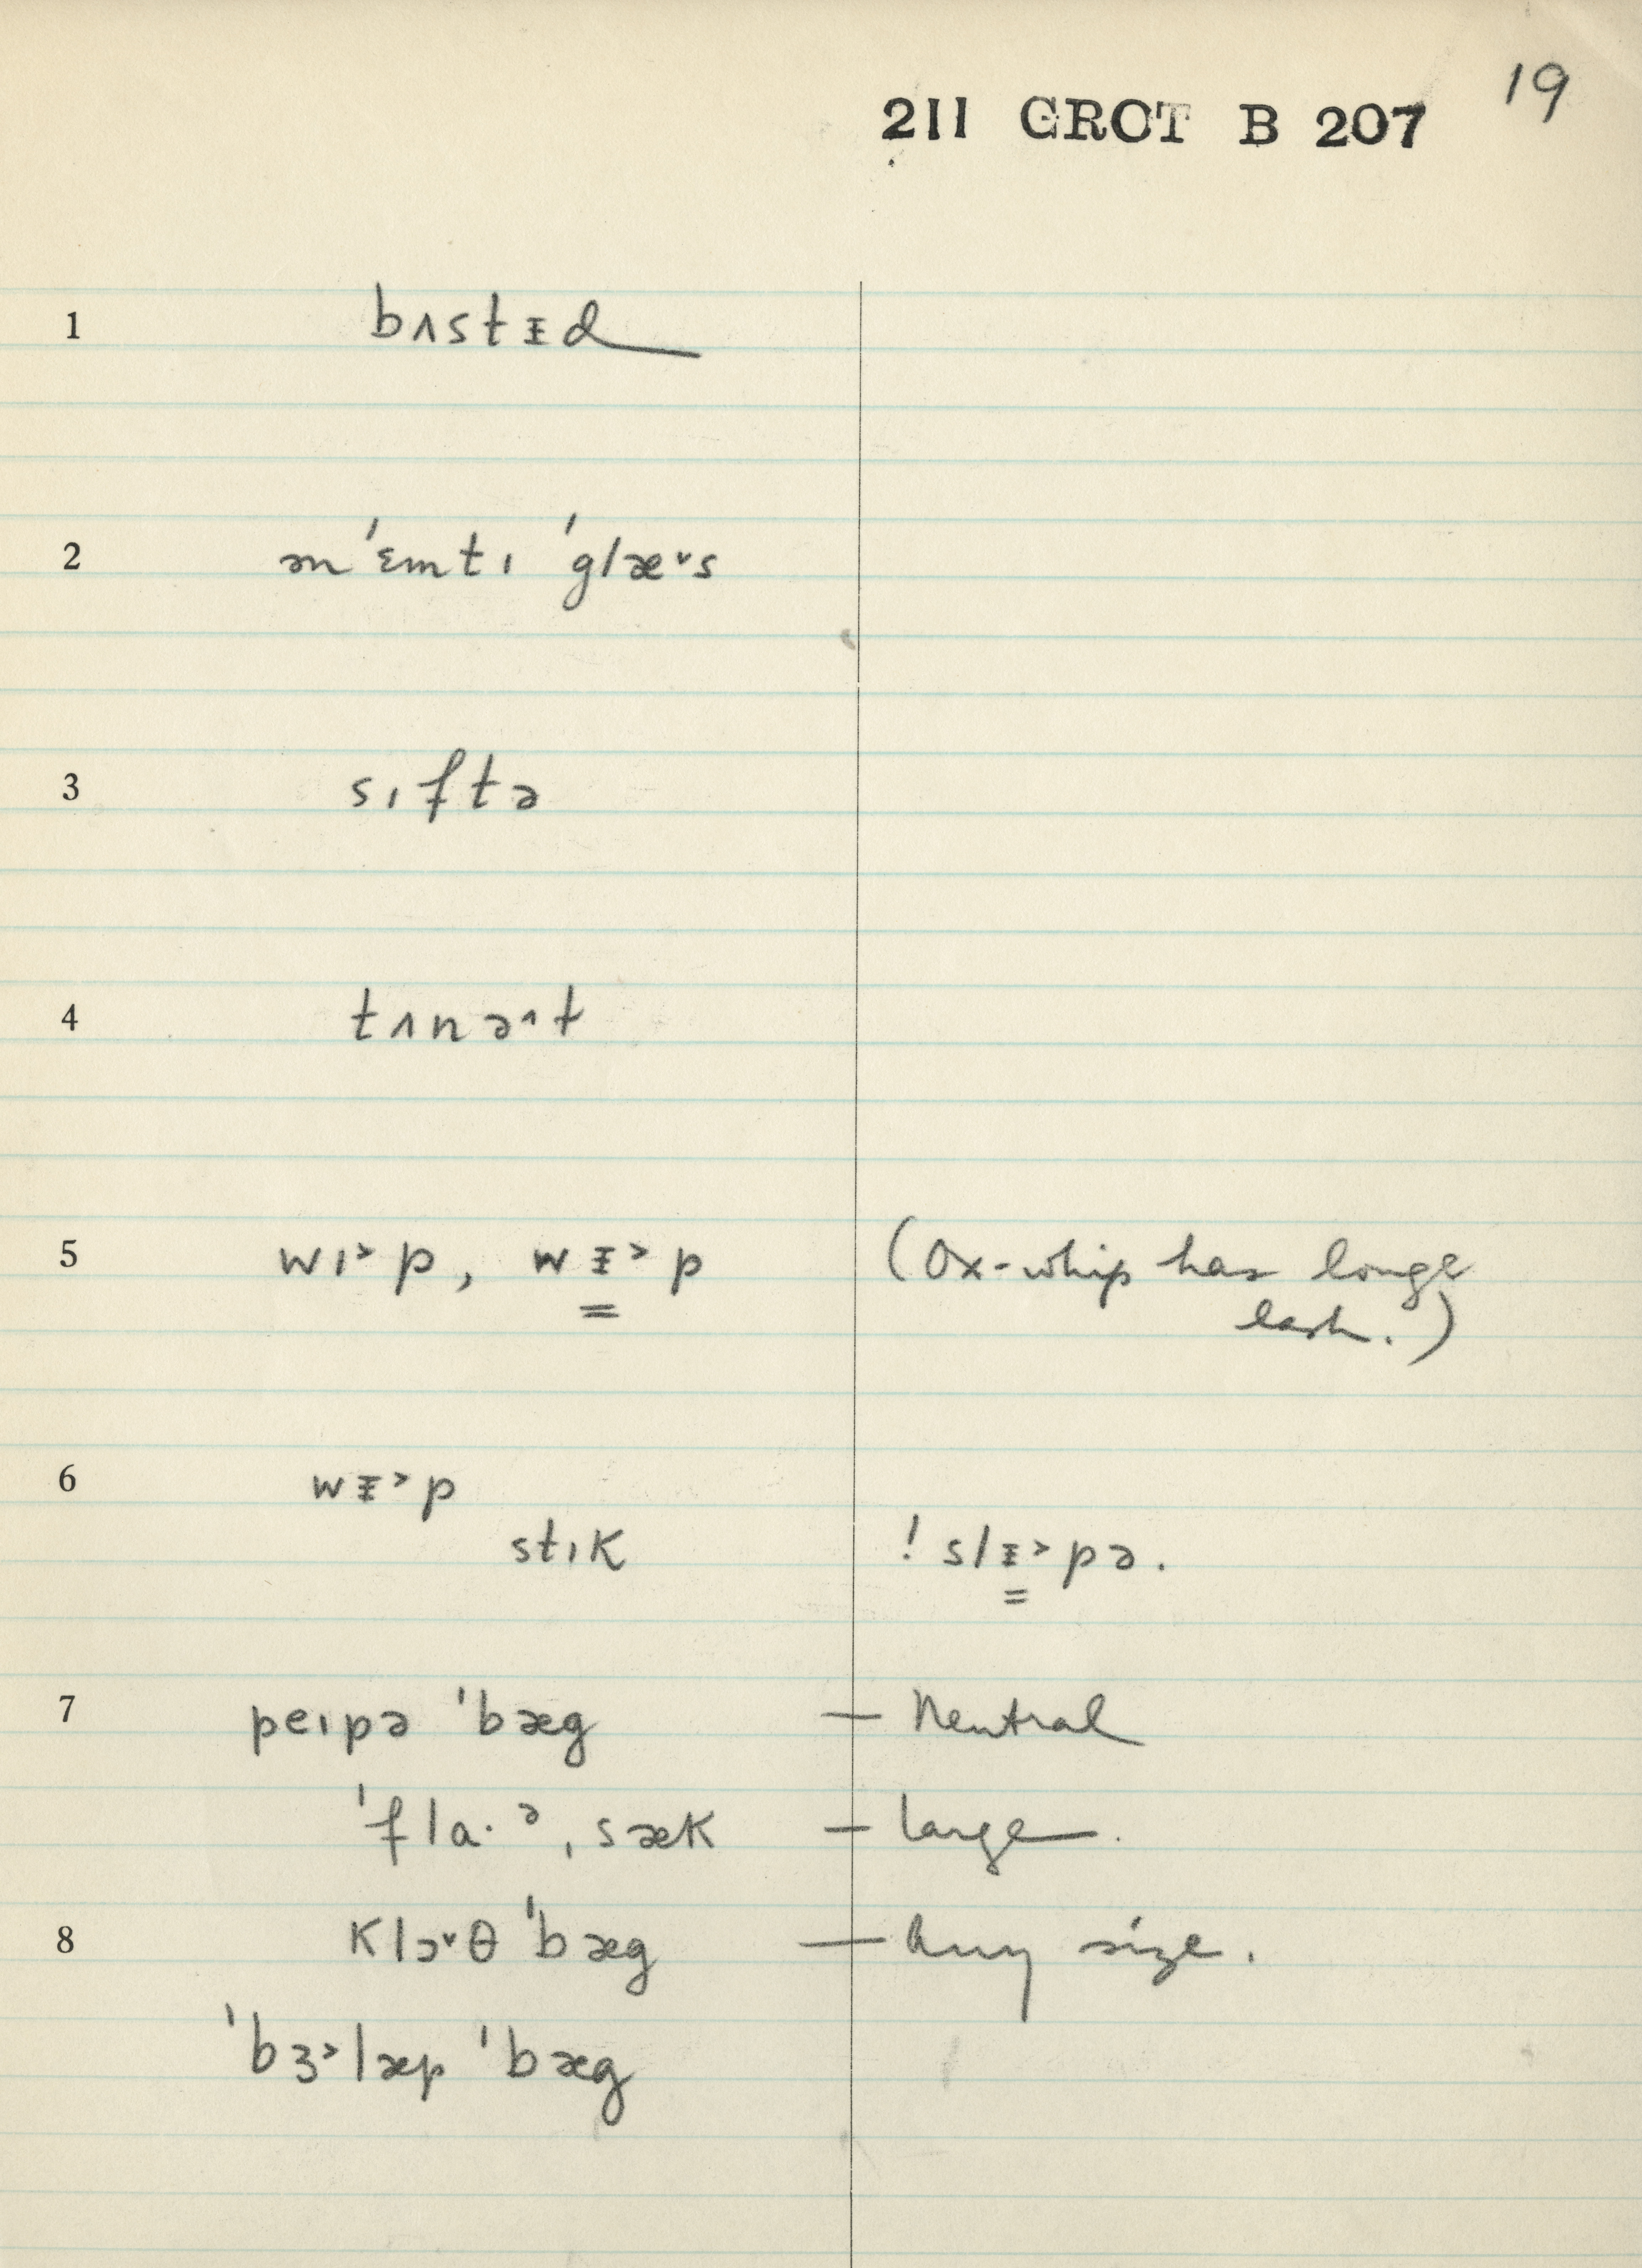 19
211 GROT B 207
1 bʌstᵻd
2 ən 'ɛmtɪ 'glæ˅s
3 sɪftə
4 tʌnə^t
5 wɪ˃p, wᵻ˃p (Ox-whip has longe
lash.)
6 wᵻ˃p
stɪk ! slᵻ˃pə.
7 peɪpə 'bæg — Neutral
'fla·ᵊ ˌsæk — large.
8 klɔ˅θ 'bæg — Any size.
'bɜ˃læp 'bæg